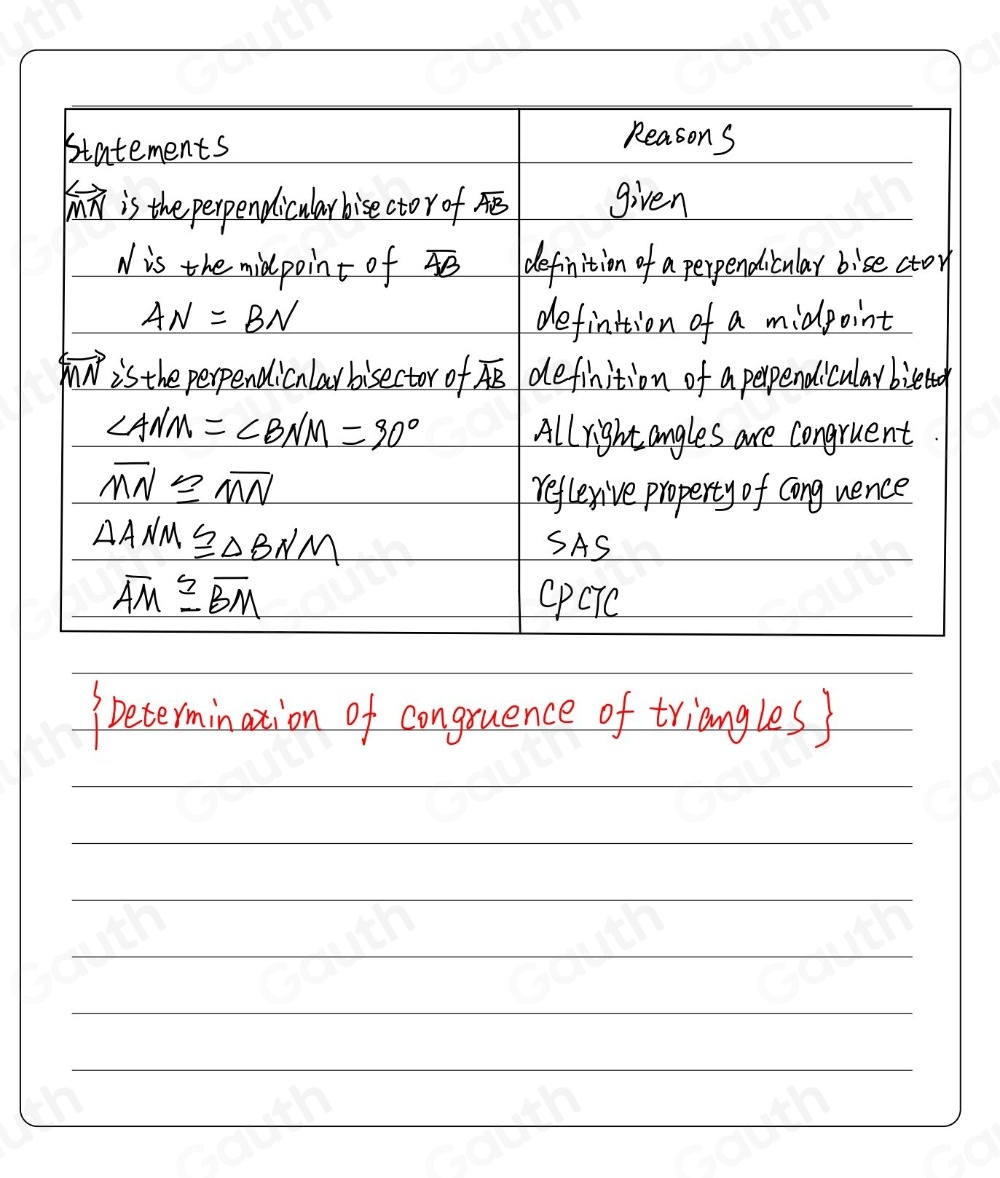 Statements Reasons
MN is the perpendicular bisector of AB given
N is the midpoint of AB definition of a perpendicular bisector
AN = BN definition of a midpoint
MN is the perpendicular bisector of AB definition of a perpendicular bisector
∠ANM = ∠BNM = 90° All right angles are congruent
MN ≅ MN reflexive property of congruence
△ANM ≅ △BNM SAS
AM ≅ BM CPCTC
{Determination of congruence of triangles}